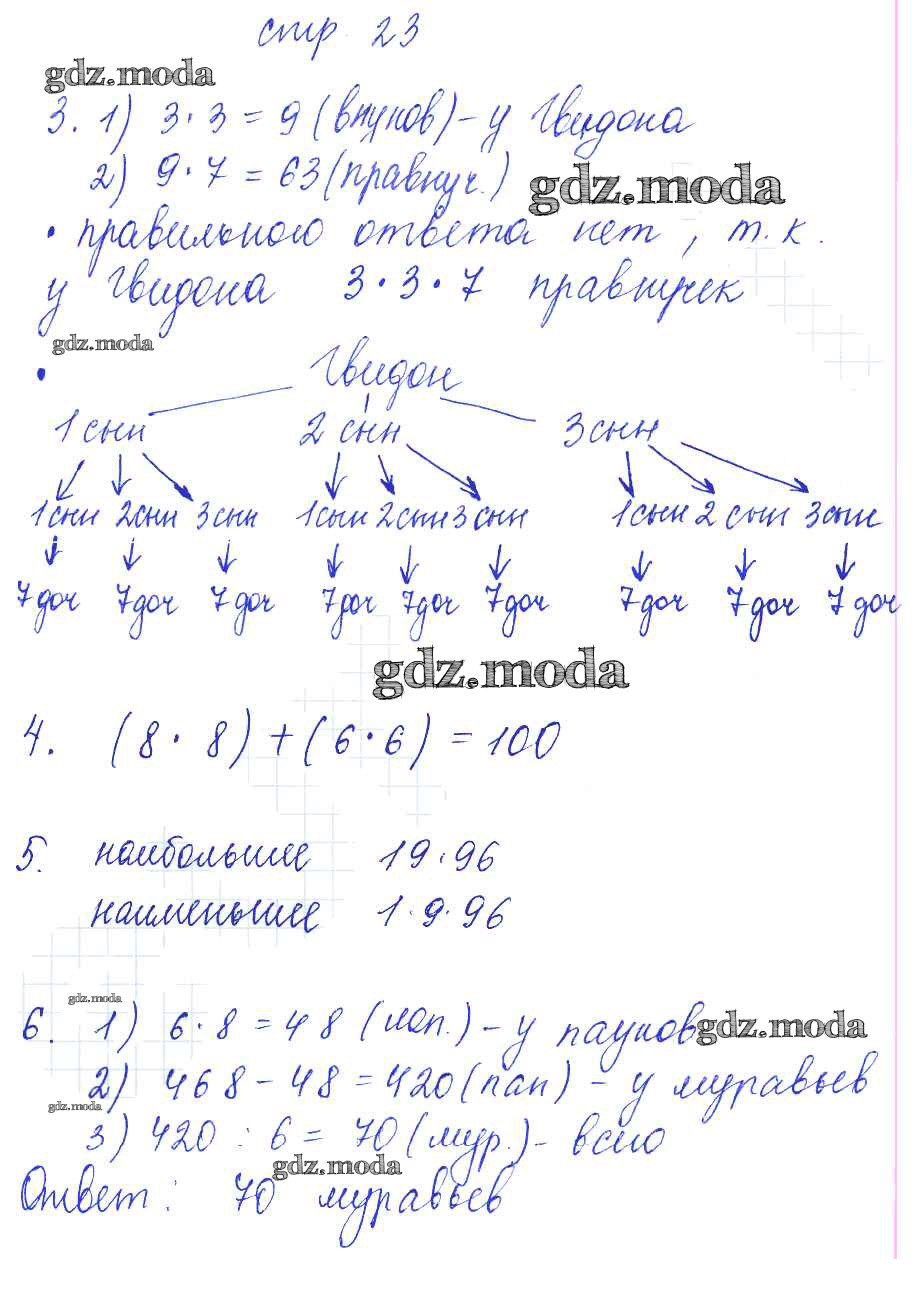 стр. 23
gdz.moda
3. 1) 3·3 = 9 (внуков) - у Гвидона
2) 9·7 = 63 (правнуч.)
gdz.moda
• правильного ответа нет, т.к.
у Гвидона 3·3·7 правнучек
gdz.moda
• Гвидон
1 сын 2 сын 3 сын
1 сын 2 сын 3 сын 1 сын 2 сын 3 сын 1 сын 2 сын 3 сын
7 доч 7 доч 7 доч 7 доч 7 доч 7 доч 7 доч 7 доч 7 доч
gdz.moda
4. (8·8) + (6·6) = 100
5. наибольшее 19·96
наименьшее 1·9·96
gdz.moda
6. 1) 6·8 = 48 (лап.) - у пауков
gdz.moda
2) 468 - 48 = 420 (лап) - у муравьев
gdz.moda
3) 420 : 6 = 70 (мур.) - всего
gdz.moda
Ответ: 70 муравьев